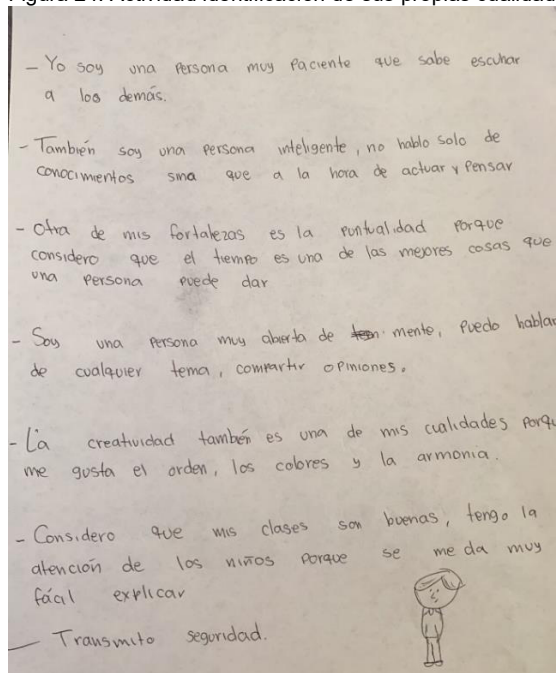 - Yo soy una persona muy paciente que sabe escuhar
a los demás.
- También soy una persona inteligente, no hablo solo de
conocimientos sina que a la hora de actuar y pensar
- Otra de mis fortalezas es la puntualidad porque
considero que el tiempo es una de las mejores cosas que
una persona puede dar
- Soy una persona muy abierta de mente, puedo hablar
de cualquier tema, compartir opiniones.
- La creatividad también es una de mis cualidades porqu
me gusta el orden, los colores y la armonia.
- Considero que mis clases son buenas, tengo la
atención de los niños porque se me da muy
fácil explicar
- Transmito seguridad.